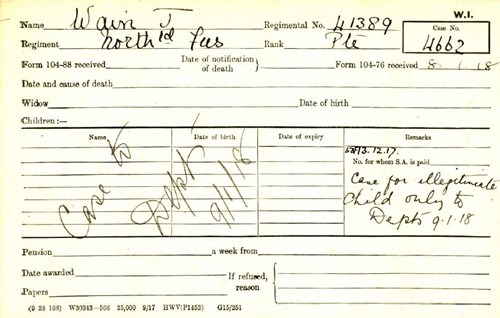 W.I.
Name Wain J Regimental No. 41389 Case No.
Regiment North'd Fus Rank Pte 4662
Form 104-88 received Date of notification of death Form 104-76 received 8.1.18
Date and cause of death
Widow Date of birth
Children:—
Name Date of birth Date of expiry Remarks
13.12.17.
No. for whom S.A. is paid
Case to Depts 9/1/18
Case for illegitimate
Child only to
Depts 9.1.18
Pension a week from
Date awarded If refused,
Papers reason
(9 38 108) W30343—566 25,000 9/17 HWV(P1453) G15/251